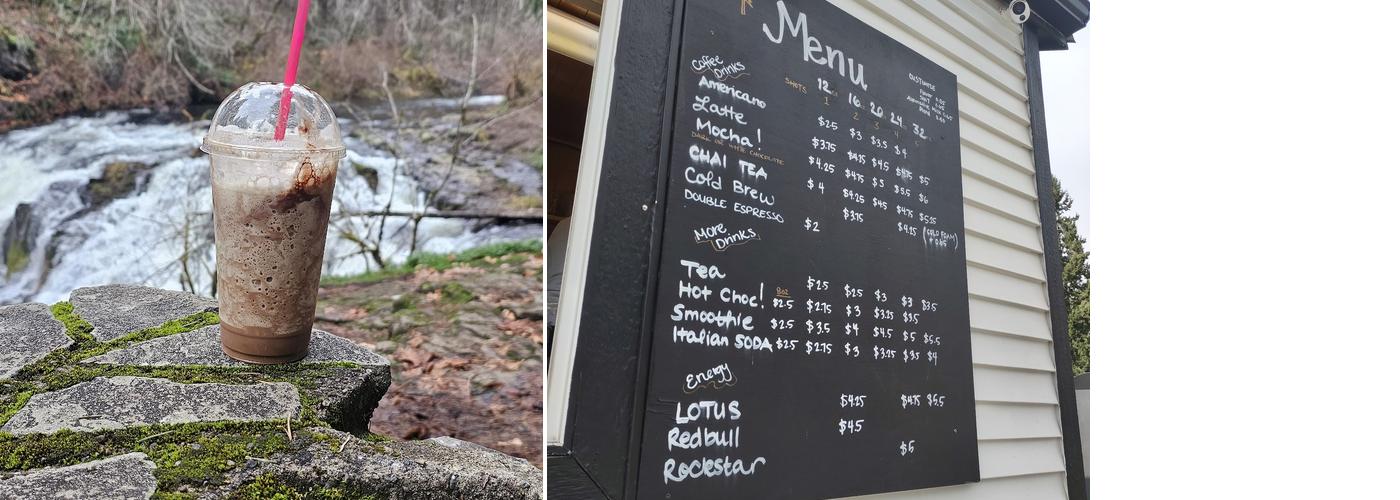 Menu
Coffee Drinks
CUSTOMIZE
SHOTS 12oz 16oz 20 24 32
1 2 3 4 5
Americano $2.5 $3 $3.5 $4
Latte $3.75 $4.25 $4.5 $4.75 $5
Mocha! $4.25 $4.75 $5 $5.5 $6
DARK OR WHITE CHOCOLATE
CHAI TEA $4 $4.25 $4.5 $4.75 $5.25
Cold Brew $3.75 $4.25 (COLD FOAM)
DOUBLE ESPRESSO $2
More Drinks
Tea $2.5 $2.5 $3 $3 $3.5
8oz
Hot Choc! $2.5 $2.75 $3 $3.25 $3.5
Smoothie $2.5 $3.5 $4 $4.5 $5 $5.5
Italian SODA $2.5 $2.75 $3 $3.25 $3.5 $4
Energy
LOTUS $4.25 $4.75 $5.5
Redbull $4.5
Rockstar $5